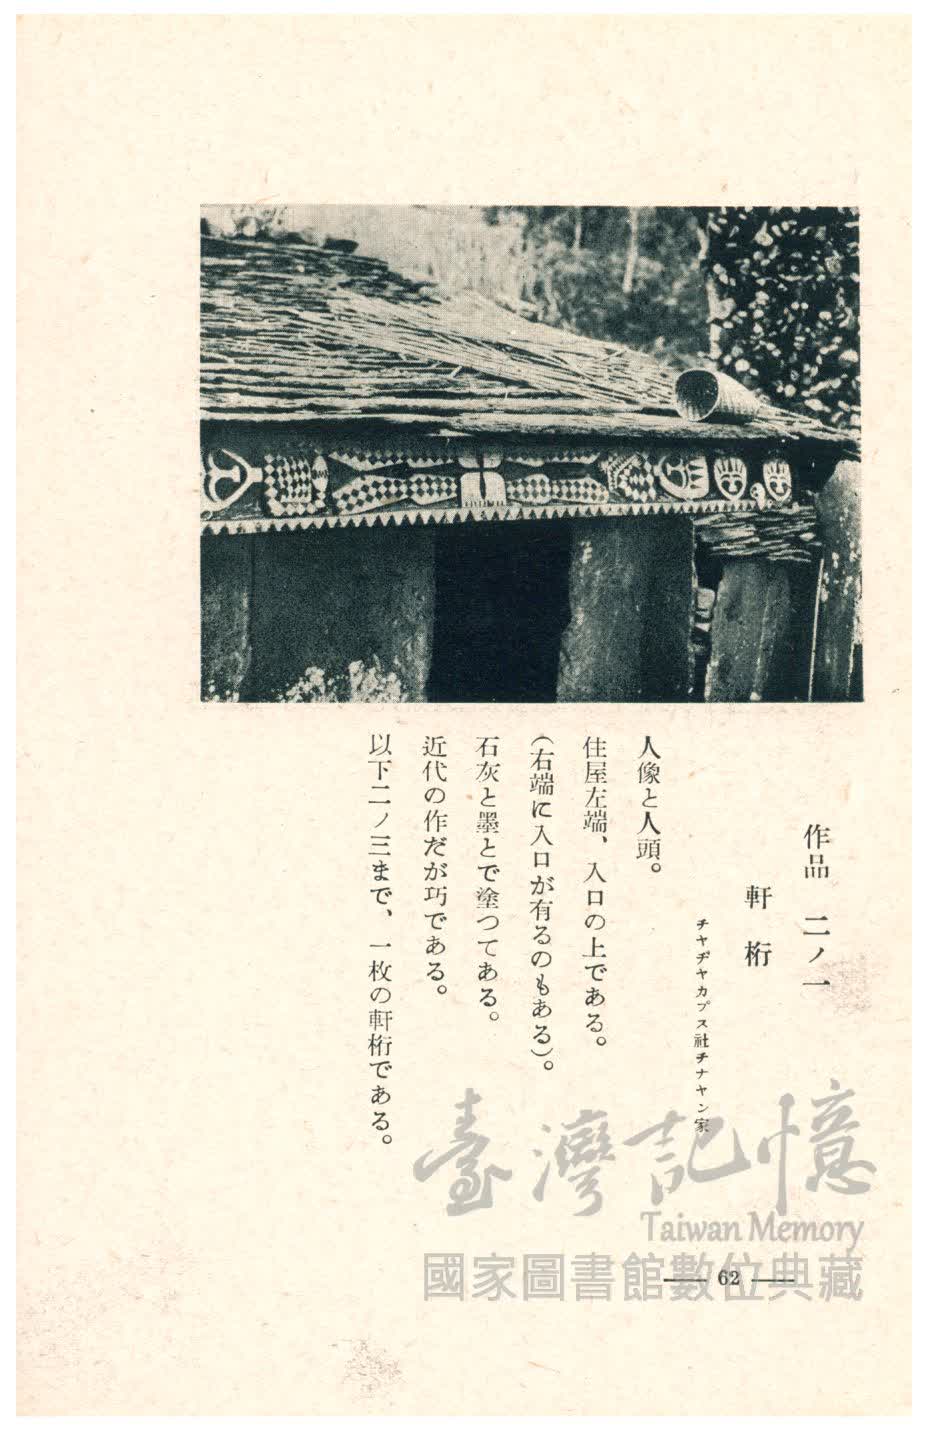 作品 二ノ一
軒桁
チヤヂヤカプス社チナヤン家
人像と人頭。
住屋左端、入口の上である。
(右端に入口が有るのもある)。
石灰と墨とで塗つてある。
近代の作だが巧である。
以下二ノ三まで、一枚の軒桁である。
臺灣記憶
Taiwan Memory
國家圖書館數位典藏
62